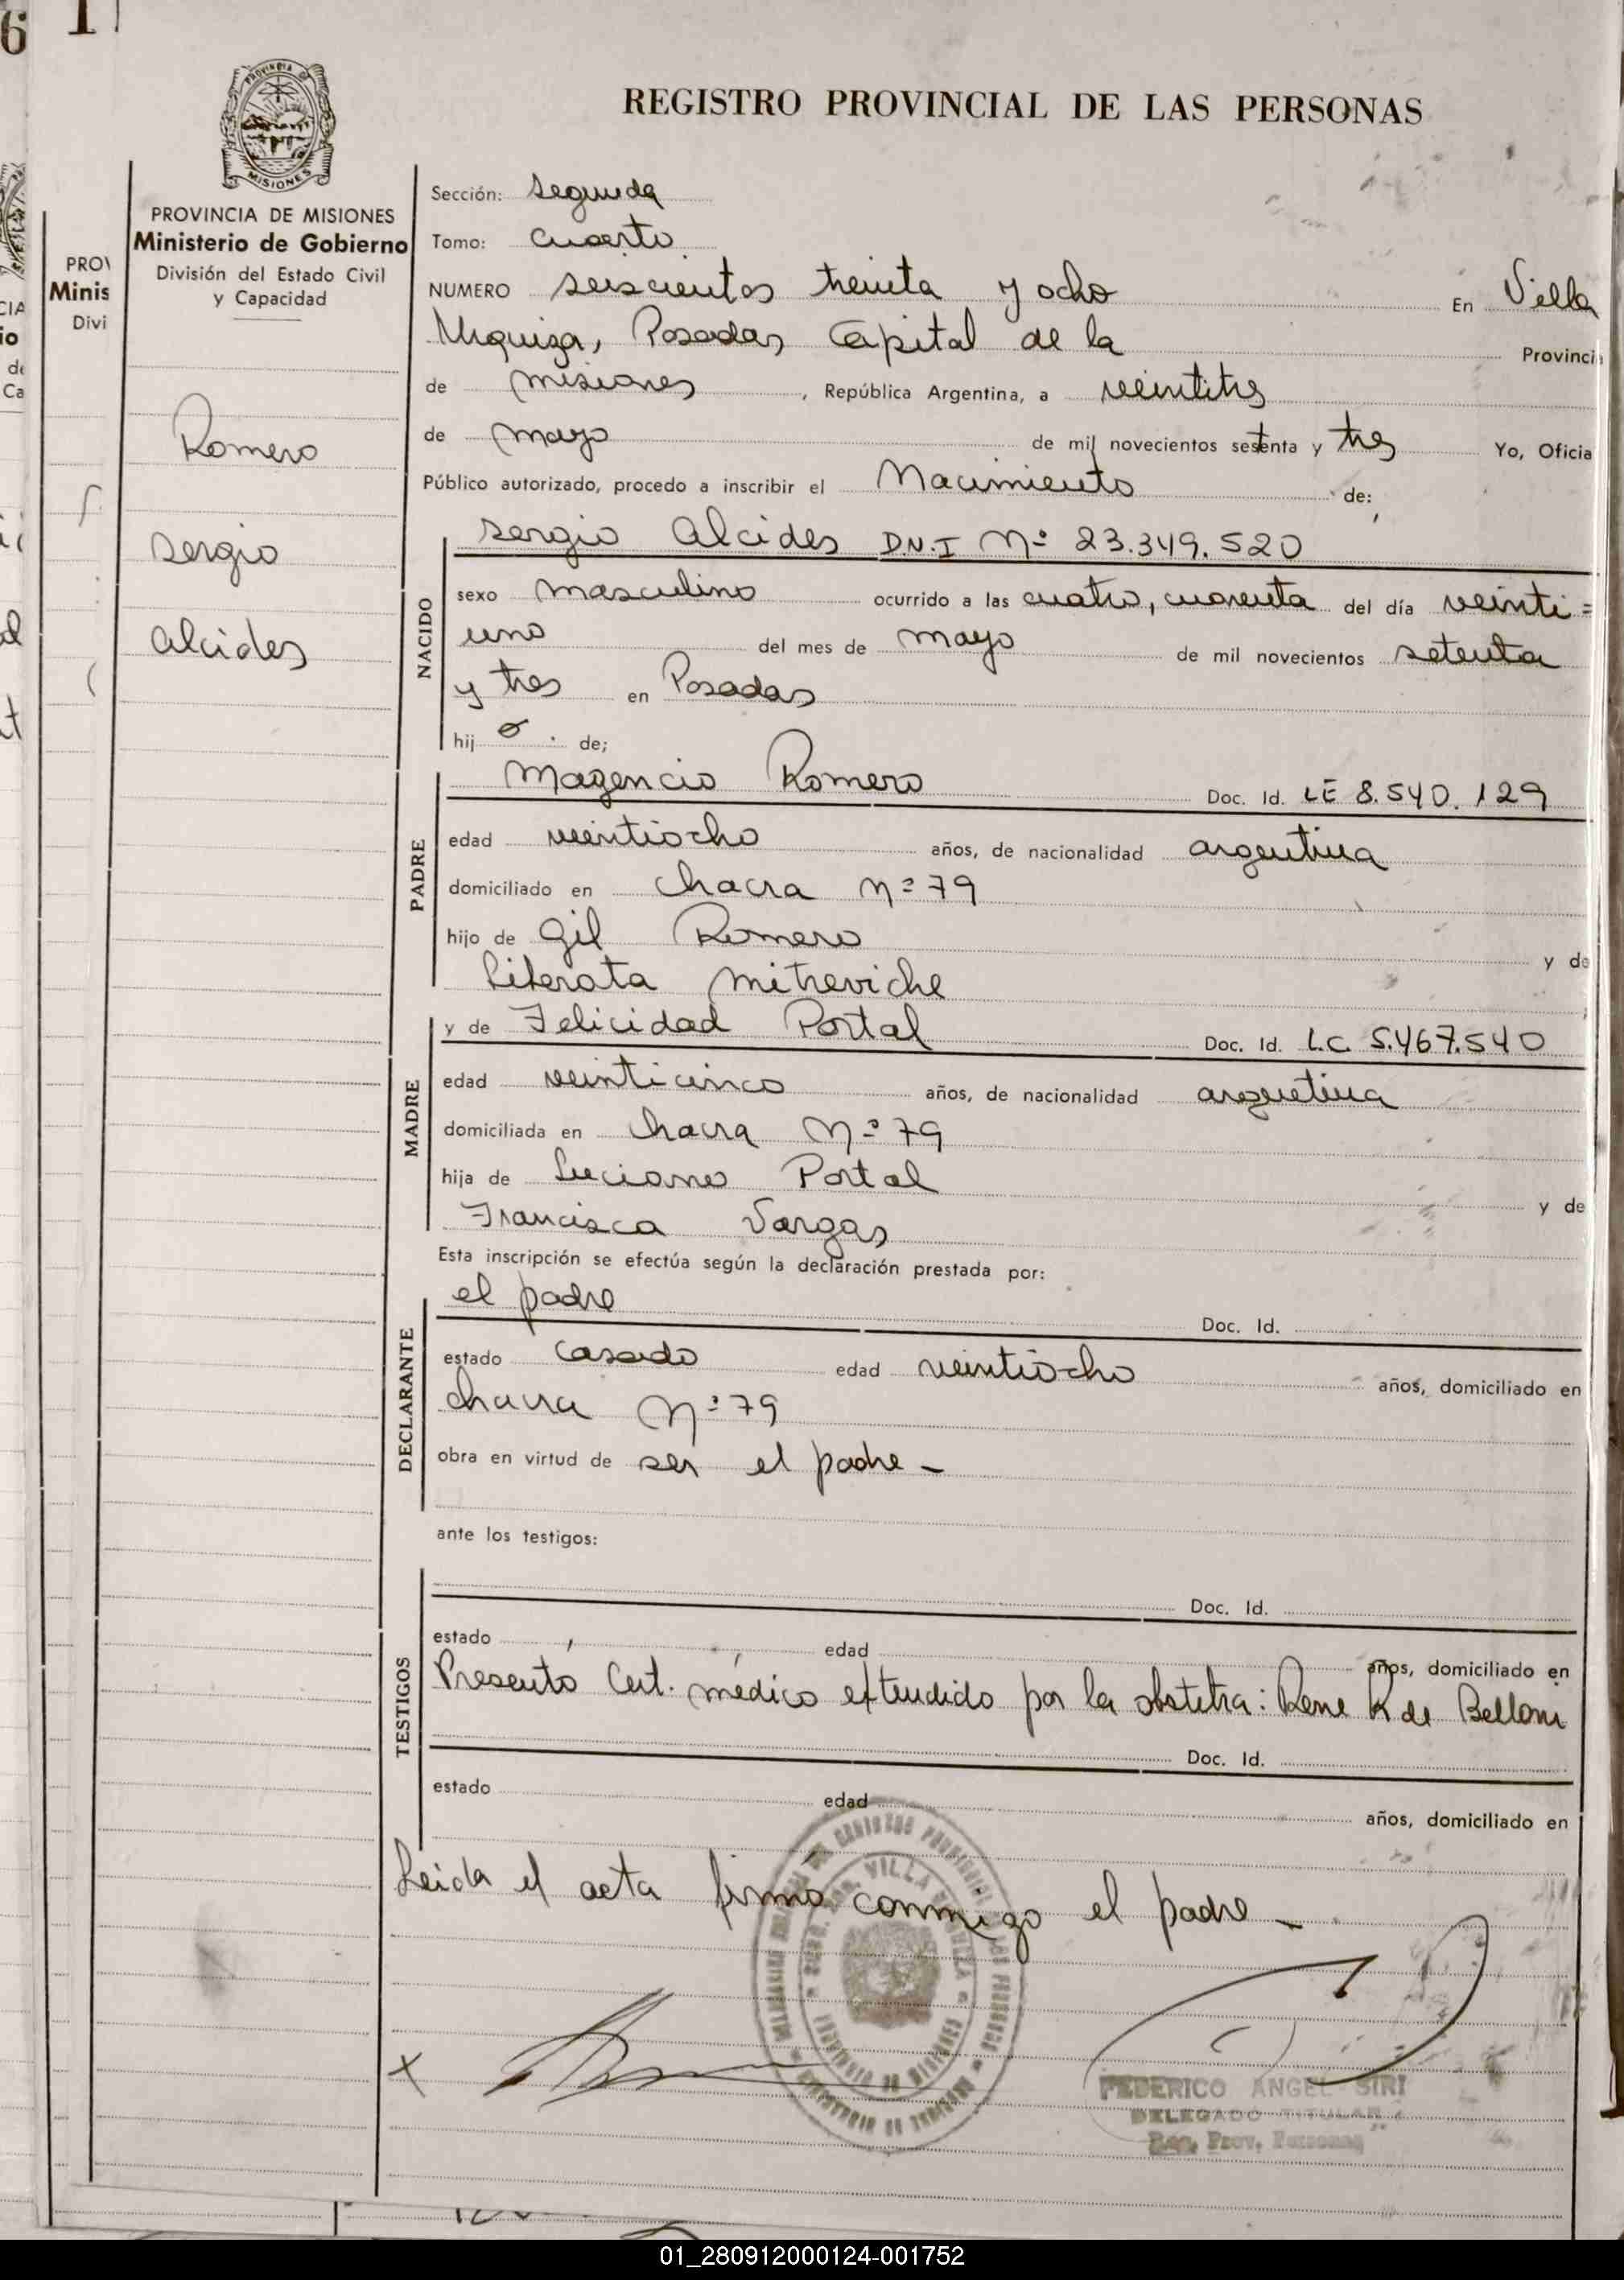 6 1
REGISTRO PROVINCIAL DE LAS PERSONAS
PROVINCIA DE
MISIONES
PROVINCIA DE MISIONES
Ministerio de Gobierno
División del Estado Civil
y Capacidad
Romero
Sergio
Alcides
PROV
Minis
Divi
Sección: Segunda
Tomo: Cuarto
NUMERO Seiscientos treinta y ocho En Villa
Urquiza, Posadas Capital de la Provinci
de Misiones, República Argentina, a veintitres
de mayo de mil novecientos setenta y tres Yo, Oficia
Público autorizado, procedo a inscribir el Nacimiento de:
NACIDO
Sergio Alcides D.N.I Nº 23.349.520
sexo masculino ocurrido a las cuatro, cuarenta del día veinti=
uno del mes de mayo de mil novecientos setenta
y tres en Posadas
hij o de;
PADRE
Magencio Romero Doc. Id. LE 8.540.129
edad veintiocho años, de nacionalidad argentina
domiciliado en chacra Nº 79
hijo de Gil Romero y de
Liberata Mitreviche
MADRE
y de Felicidad Portal Doc. Id. L.C 5.467.540
edad veinticinco años, de nacionalidad argentina
domiciliada en chacra Nº 79
hija de Luciano Portal y de
Francisca Vargas
Esta inscripción se efectúa según la declaración prestada por:
DECLARANTE
el padre Doc. Id.
estado casado edad veintiocho años, domiciliado en
chacra Nº 79
obra en virtud de ser el padre -
ante los testigos:
TESTIGOS
Doc. Id.
estado edad años, domiciliado en
Presentó Cert. médico extendido por la obstetra: Rene K de Belloni
Doc. Id.
estado edad años, domiciliado en
Leida el acta firmó conmigo el padre -
VILLA URQUIZA
X
FEDERICO ANGEL SIRI
DELEGADO TITULAR
Reg. Prov. Personas
01_280912000124-001752